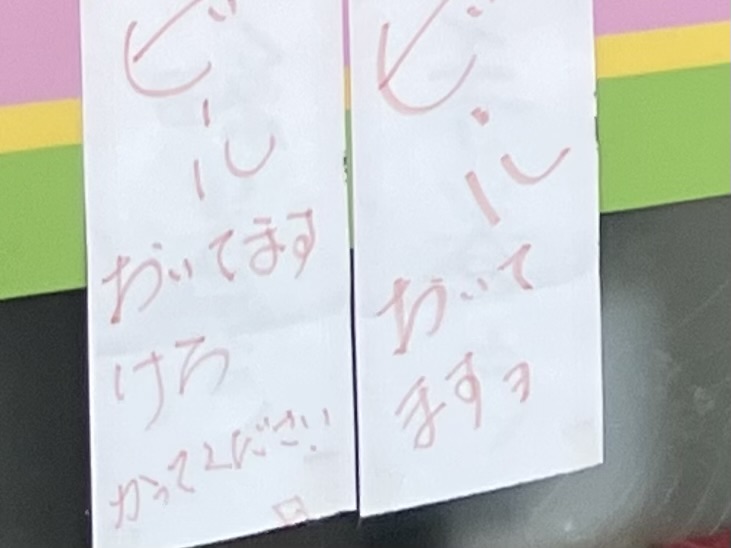 ビール
おいてます
けろ
かってください
ビール
おいて
ますョ